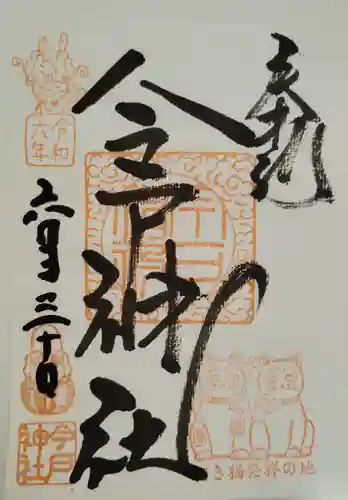 奉拝
今戸神社
令和
六年
六月三十日
今戸
神社
招き猫発祥の地